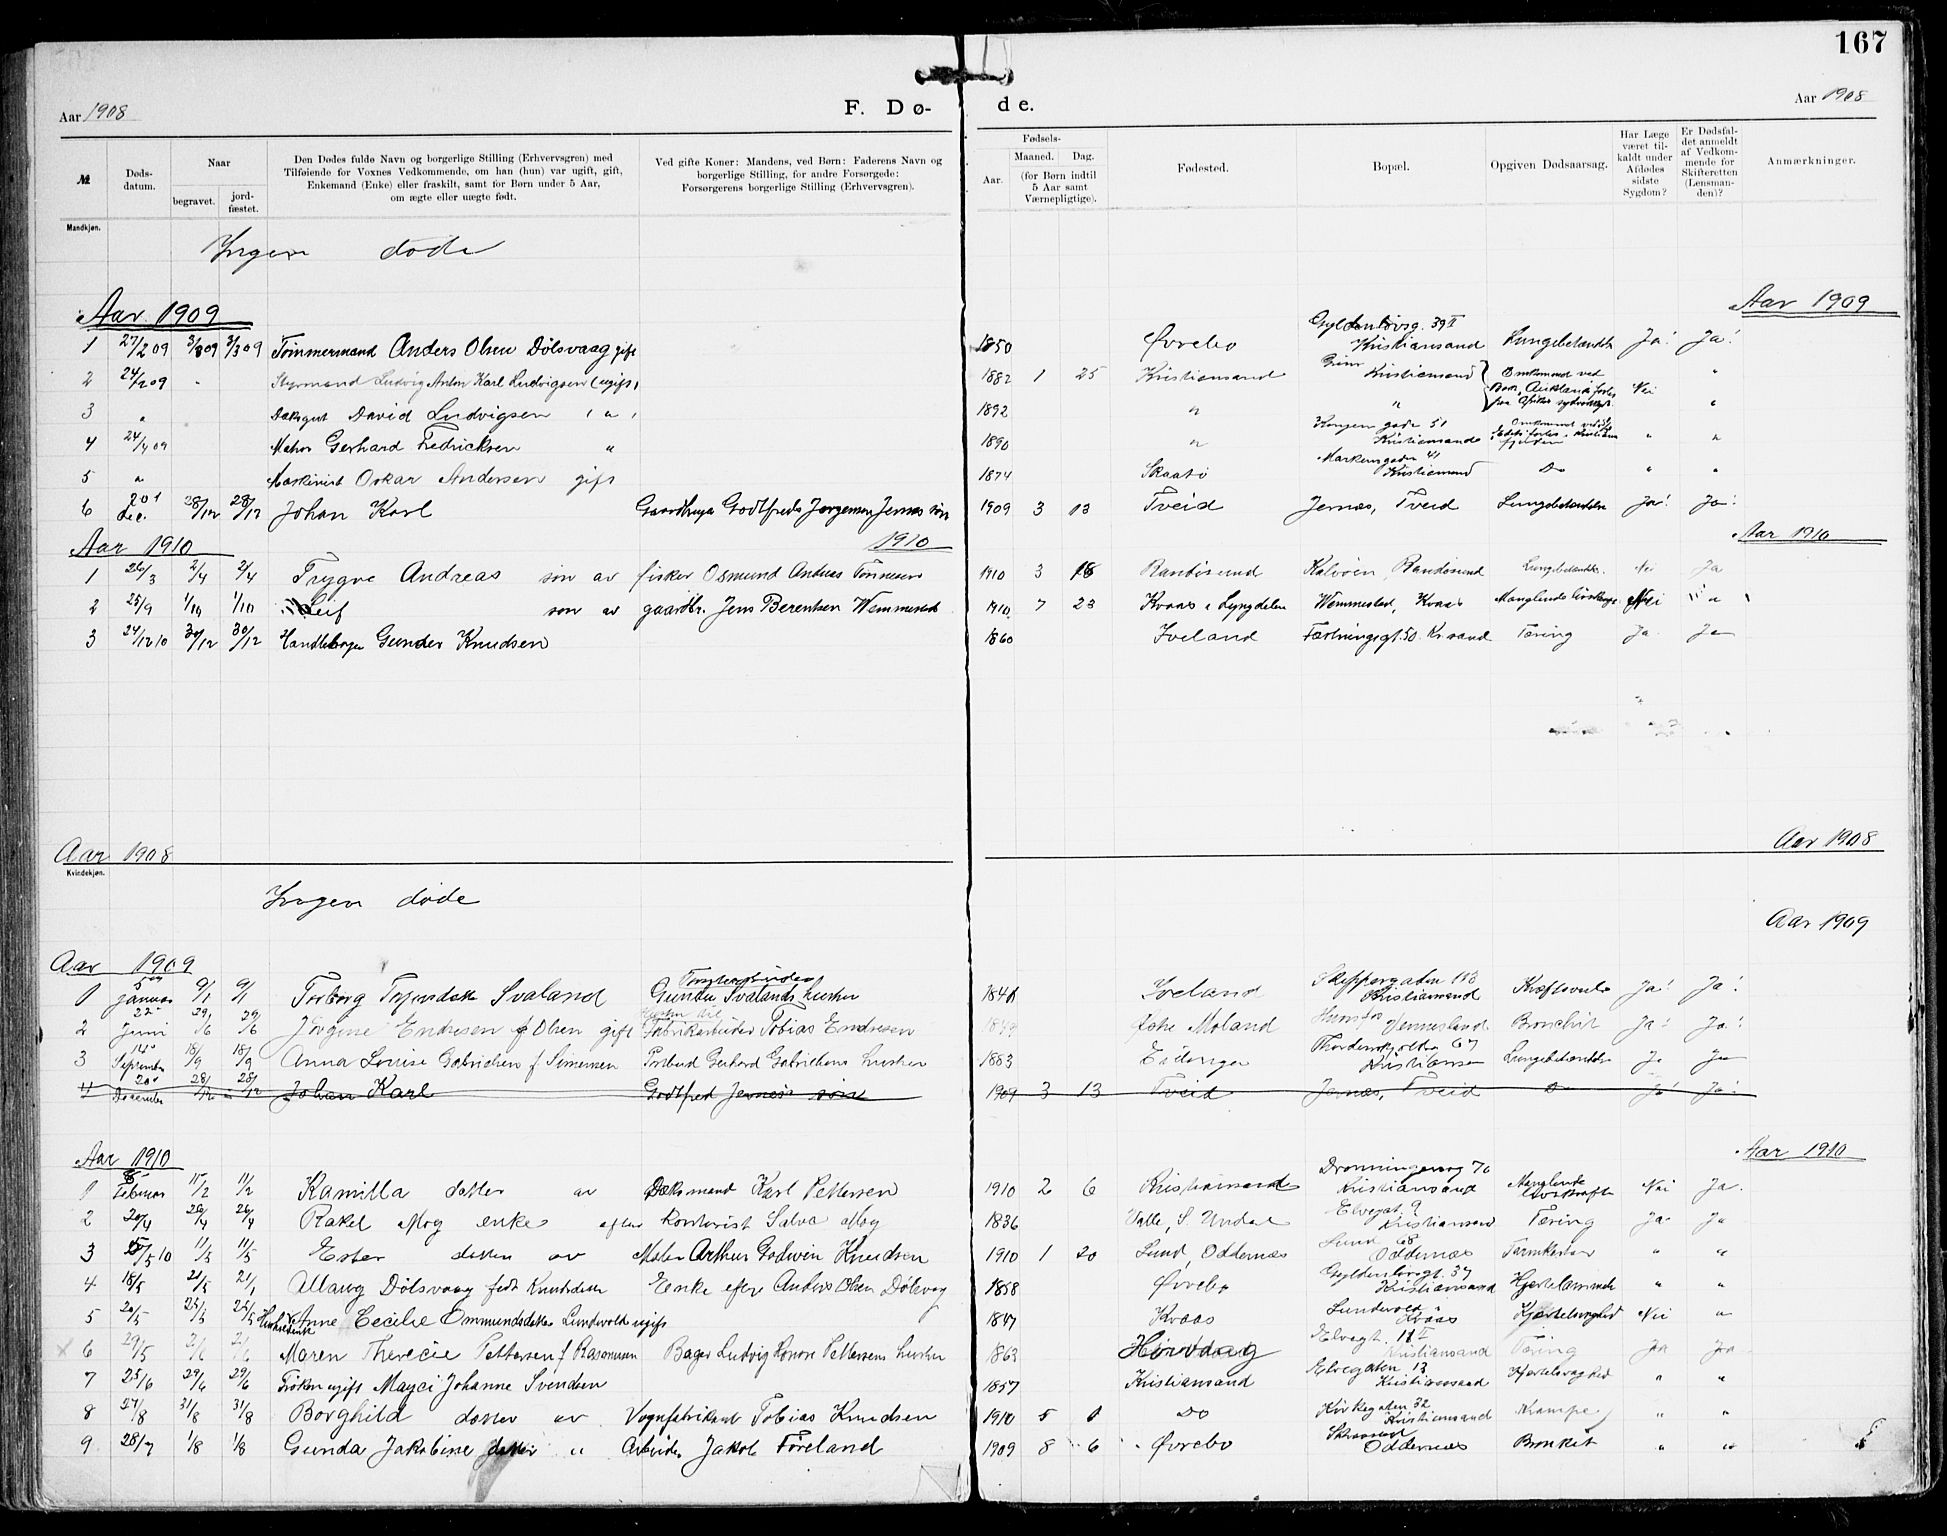 167
Aar 1908 F. Dø- de. Aar 1908
№ Døds-datum. Naar begravet. jord-fæstet. Den Dødes fulde Navn og borgerlige Stilling (Erhvervsgren) med Tilføiende for Voxnes Vedkommende, om han (hun) var ugift, gift, Enkemand (Enke) eller fraskilt, samt for Børn under 5 Aar, om ægte eller uægte født. Ved gifte Koner: Mandens, ved Børn: Faderens Navn og borgerlige Stilling, for andre Forsørgede: Forsørgerens borgerlige Stilling (Erhvervsgren). Fødsels- Aar. Maaned. Dag. (for Børn indtil 5 Aar samt Værnepligtige). Fødested. Bopæl. Opgiven Dødsaarsag. Har Læge været til-kaldt under Afdødes sidste Sygdom? Er Dødsfal-det anmeldt af Vedkom-mende for Skifteretten (Lensman-den)? Anmærkninger.
Mandkjøn.
Ingen døde
Aar 1909 Aar 1909
1 27/2 09 3/3 09 3/3 09 Tømmermand Anders Olsen Dölsvaag gift 1850 Øvrebo Gyldenløvsg. 39 II Kristiansand Lungebetændelse Ja! Ja!
2 24/2 09 Styrmand Ludvig Anton Karl Ludvigsen (ugift) 1882 1 25 Kristiansand Grim Kristiansand Omkommet ved Nei "
3 " Dæksgut David Ludvigsen (") 1892 " " "
4 24/4 09 Matros Gerhard Fredricksen " 1890 " Kongens gade 51 Kristiansand " "
5 " Maskinist Oskar Andersen gift 1874 Skaatö Markensgaden 41 Kristiansand Do " "
6 20de Dec. 28/12 28/12 Johan Karl Gaardbruger Godtfred Jørgensen Jernæs søn 1909 3 13 Tveid Jernæs, Tveid Lungebetændelse Ja! Ja!
Aar 1910 1910 Aar 1910
1 26/3 2/4 2/4 Trygve Andreas søn av fisker Osmund Andreas Tønnesen 1910 3 Randösund Kalvöen, Randøsund Lungebetændelse Nei Ja
2 25/9 1/10 1/10 Leif søn av gaardbr. Jens Berentsen Wemmestad 1910 7 23 Kvaas i Lyngdalen Wemmestad, Kvaas Manglende livskraft Nei "
3 24/12 10 30/12 30/12 Handelsborger Gunder Knudsen 1860 Iveland Fæstningsgt. 50. Kr.sand Tæring Ja Ja
Aar 1908 Aar 1908
Kvindekjøn.
Ingen døde
Aar 1909
Aar 1909
1 5te Januar 9/1 9/1 Torborg Svaland Gunder Svalands hustru 1841 Iveland Skippergaden 113 Kristiansand Kræftsvulst Ja! Ja!
2 22de Juni 29/6 29/6 Jörgine Endresen f. Olsen gift Hustru til Fabrikarbeider Tobias Endresen Moland Hunsfos Vennesland Bronchit Ja! Ja!
3 14de September 18/9 18/9 Anna Louise Gabrielsen f. Simensen Postbud Gerhard Gabrielsens hustru 1883 Eidanger Thordenskjoldsg 67 Kristiansand Lungebetændelse Ja Ja
4 20de December 28/12 28/12 Johan Karl Godtfred Jernæs's søn 1909 3 13 Tveid Jernæs, Tveid Do Ja! Ja!
Aar 1910 Aar 1910
1 Februar 11/2 11/2 Kamilla datter av Dæksmand Karl Pettersen 1910 2 6 Kristiansand Dronningensg 70 Kristiansand Manglende livskraft Nei Ja.
2 20/4 26/4 26/4 Rakel Moy enke efter Kontorist Salve Moy 1836 Valle, S. Undal Elvegat 9 Kristiansand Tæring Ja Ja
3 5/5 10 11/5 11/5 Ester datter av Maler Arthur Godwin Knudsen 1910 1 20 Lund, Oddernæs Lund 68 Oddernæs Tarmkatar " "
4 18/5 21/5 Allaug Dölsvaag født Knudsdatter Enke efter Anders Olsen Dölsvag 1858 Øvrebo Gyldenløvsgt. 37 Kristiansand Hjertelammelse " "
5 20/5 25/5 25/5 Anne Cecilie Ommundsdatter Lundevold ugift 1847 Kvaas Lundevold Kvaas Hjertesvaghed Nei "
6 29/5 Maren Therecie Pettersen f. Rasmussen Bager Ludvig Honore Pettersens hustru 1863 Høivaag Elvegt. 11 II Kristiansand Tæring Ja Ja
7 23/6 29/6 29/6 Frøken ugift Mayci Johanne Svendsen 1857 Kristiansand Elvegaten 13 Kristiansand Hjertesvaghed " "
8 27/8 31/8 31/8 Borghild datter av Vognfabrikant Tobias Knudsen 1910 5 1 Do Kirkegaten 32 Kristiansand Krampe " "
9 28/7 1/8 1/8 Gunda Jakobine datter " Arbeider Jakob Føreland 1909 8 6 Øvrebo Oddernæs Bronkit " "